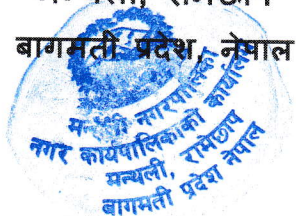 मन्थली, रामेछाप
बागमती प्रदेश, नेपाल
मन्थली नगरपालिका
नगर कार्यपालिकाको कार्यालय
मन्थली, रामेछाप
बागमती प्रदेश नेपाल